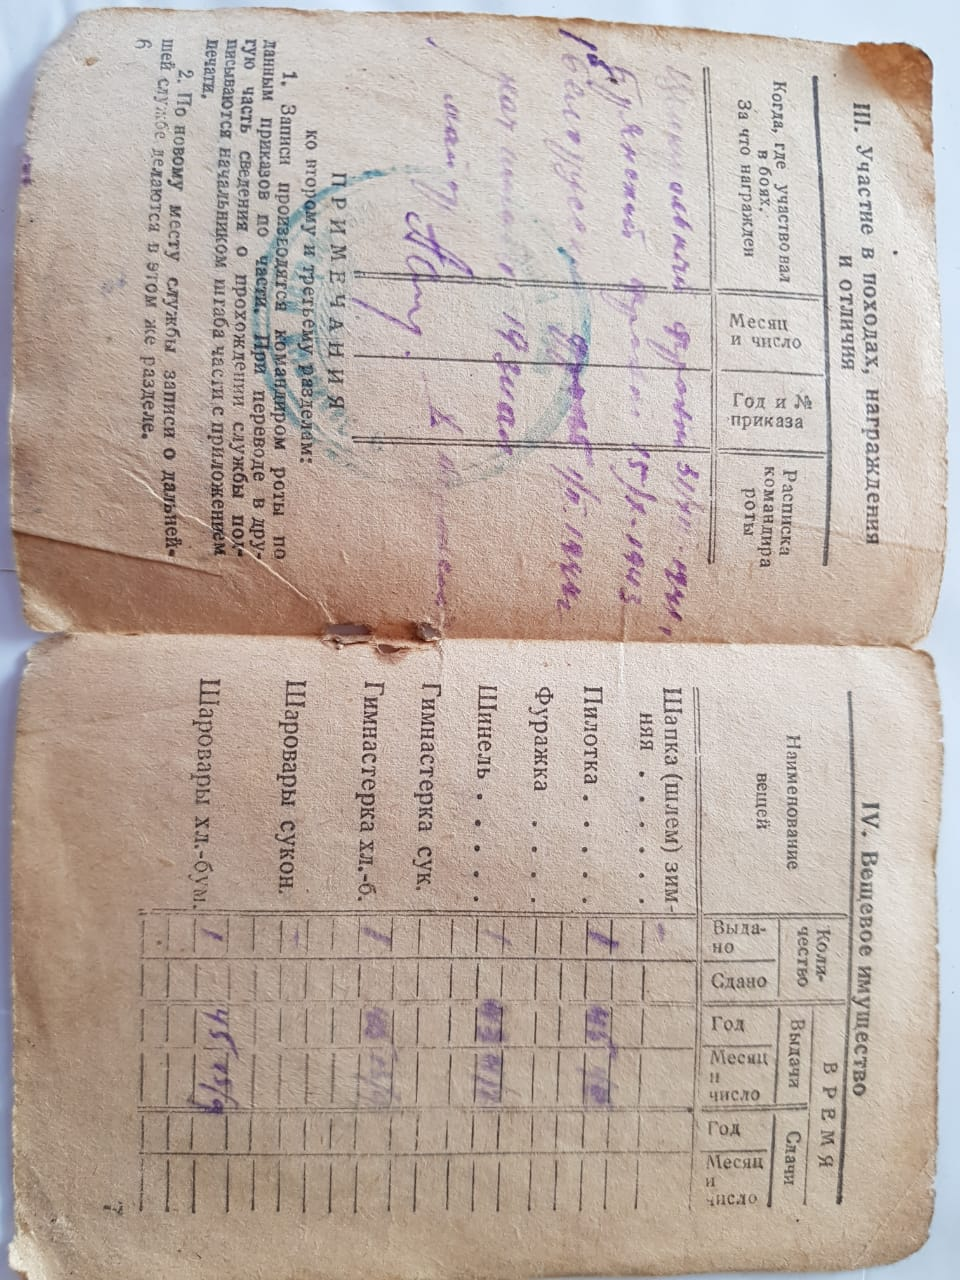 III. Участие в походах, награждения
и отличия
Когда, где участвовал
в боях.
За что награжден
Месяц
и число
Год и №
приказа
Расписка
командира
роты
фронт
Брянский фронт 1943
1й Белорусский фронт 1944г
майор
ПРИМЕЧАНИЯ
ко второму и третьему разделам:
1. Записи производятся командиром роты по
данным приказов по части. При переводе в дру-
гую часть сведения о прохождении службы под-
писываются начальником штаба части с приложением
печати.
2. По новому месту службы записи о дальней-
шей службе делаются в этом же разделе.
6
IV. Вещевое имущество
Наименование
вещей
Коли-
чество
ВРЕМЯ
Выдачи
Сдачи
Выда-
но
Сдано
Год
Месяц
и
число
Год
Месяц
и
число
Шапка (шлем) зим-
няя . . . . . -
Пилотка . . . . . 1 45
Фуражка . . . .
Шинель . . . . . 1 43
Гимнастерка сук.
Гимнастерка хл.-б. 1 45
Шаровары сукон. -
Шаровары хл.-бум. 1 45 15/9